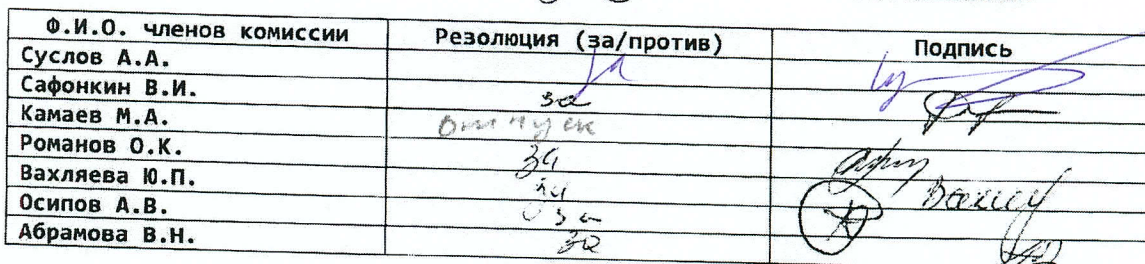 Ф.И.О. членов комиссии Резолюция (за/против) Подпись
Суслов А.А. за
Сафонкин В.И. за
Камаев М.А. Отпуск
Романов О.К. за
Вахляева Ю.П. за
Осипов А.В. за
Абрамова В.Н. за